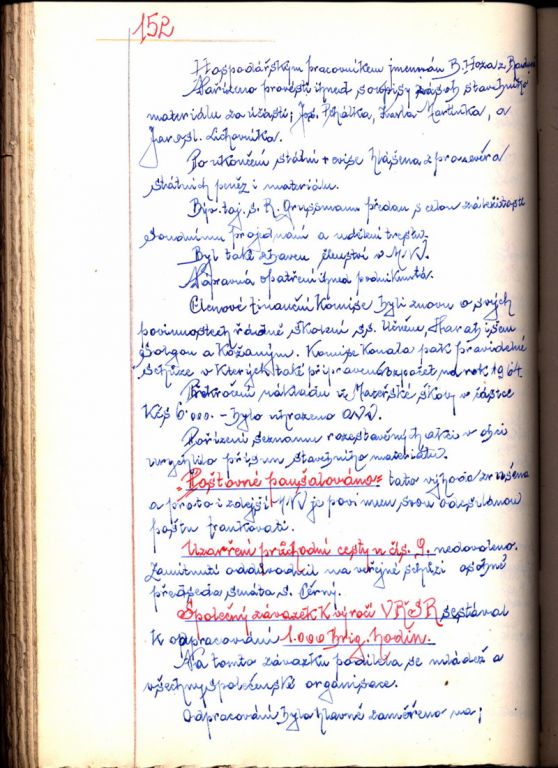 152
Hospodářským pracovníkem jmenován B. Hoza z
Nařízeno provésti ihned soupisy zásob stavebního
materiálu za účasti; Jos. Karla Martinka, a
Jarosl. Lichovníka.
Po ukončení státní revise hlášena zpronevěra
státních peněz i materiálu.
Býv. taj. s. R. Grussmann předán s celou záležitostí
soudnímu projednání a udělení trestu.
Byl také zbaven členství v M.N.V.
Nápravná opatření ihned podniknuta.
Členové finanční komise byli znovu o svých
povinnostech řádně školeni ss.
a Kožaným. Komise konala pak pravidelné
schůze v kterých také připraven rozpočet na rok 1964
Překročení nákladu v Mateřské školy v částce
Kčs 6.000.- bylo uhrazeno ONV.
Pořízení seznamu rozestavěných akcí v obci
urychlilo přísun stavebního materiálu.
"Poštovné paušalováno" tato výhoda zrušena
a proto i zdejší MNV je povinen svou odesílanou
poštu frankovati.
Uzavření průchodní cesty u čís. 9. nedovoleno.
Zamítnutí odůvodnil na veřejné schůzi osobně
předseda senátu s. Černý.
Společný závazek k výročí VŘSR sestával
k odpracování 1.000 brig. hodin.
Na tomto závazku podílela se mládež a
všechny společenské organisace.
Odpracování bylo hlavně zaměřeno na;